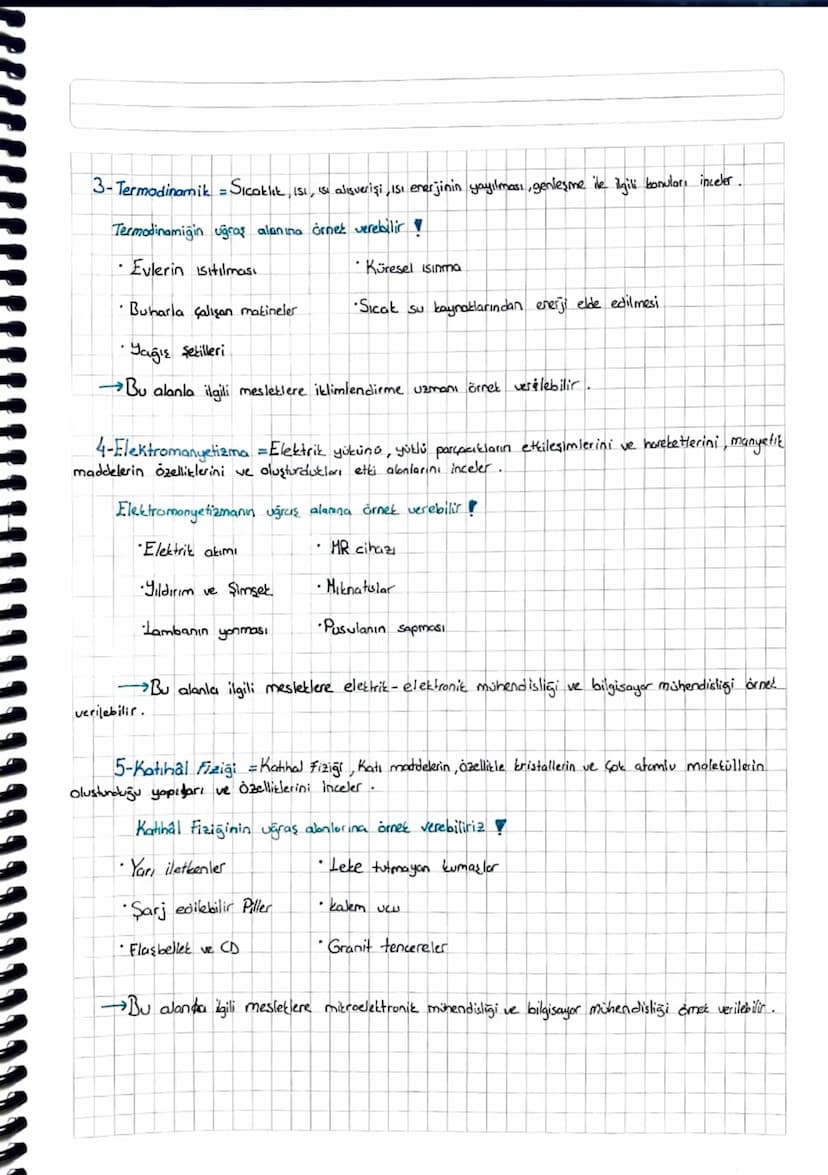 3-Termodinamik = Sıcaklık, ısı, ısı alışverişi, ısı enerjinin yayılması, genleşme ile ilgili konuları inceler.
Termodinamiğin uğraş alanına örnek verebilir !
· Evlerin ısıtılması · Küresel ısınma
· Buharla çalışan makineler · Sıcak su kaynaklarından enerji elde edilmesi
· Yağış şekilleri
→ Bu alanla ilgili mesleklere iklimlendirme uzmanı örnek verilebilir.
4-Elektromanyetizma = Elektrik yükünü, yüklü parçacıkların etkileşimlerini ve hareketlerini, manyetik
maddelerin özelliklerini ve oluşturdukları etki alanlarını inceler.
Elektromanyetizmanın uğraş alanına örnek verebilir !
· Elektrik akımı · MR cihazı
· Yıldırım ve Şimşek · Mıknatıslar
· Lambanın yanması · Pusulanın sapması
→ Bu alanla ilgili mesleklere elektrik-elektronik mühendisliği ve bilgisayar mühendisliği örnek
verilebilir.
5-Katıhâl Fiziği = Katıhal Fiziği, Katı maddelerin, özellikle kristallerin ve çok atomlu moleküllerin
oluşturduğu yapıları ve özelliklerini inceler.
Katıhâl Fiziğinin uğraş alanlarına örnek verebiliriz !
· Yarı iletkenler · Leke tutmayan kumaşlar
· Şarj edilebilir Piller · kalem ucu
· Flaşbellek ve CD · Granit tencereler
→ Bu alanda ilgili mesleklere mikroelektronik mühendisliği ve bilgisayar mühendisliği örnek verilebilir.